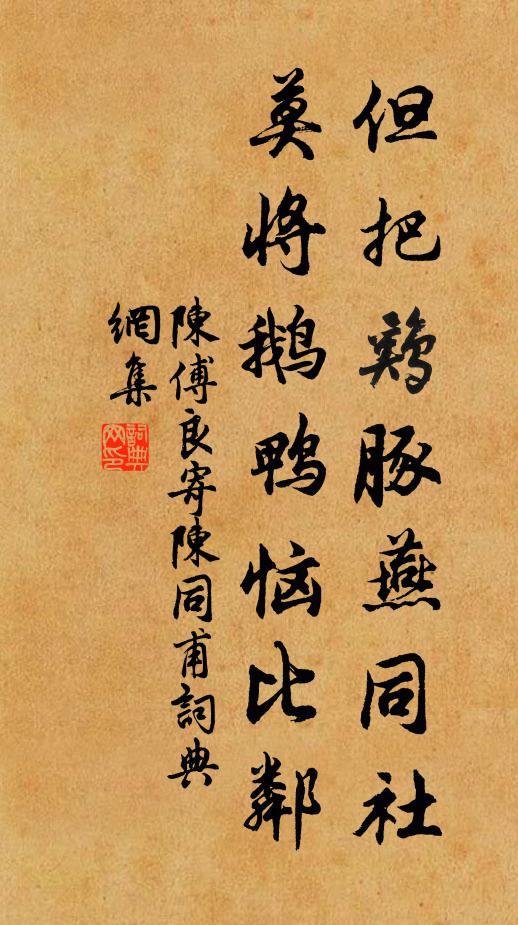 但把鷄豚燕同社
莫将鹅鸭恼比鄰
陳傅良寄陳同甫詞典
網集
詞典
网印